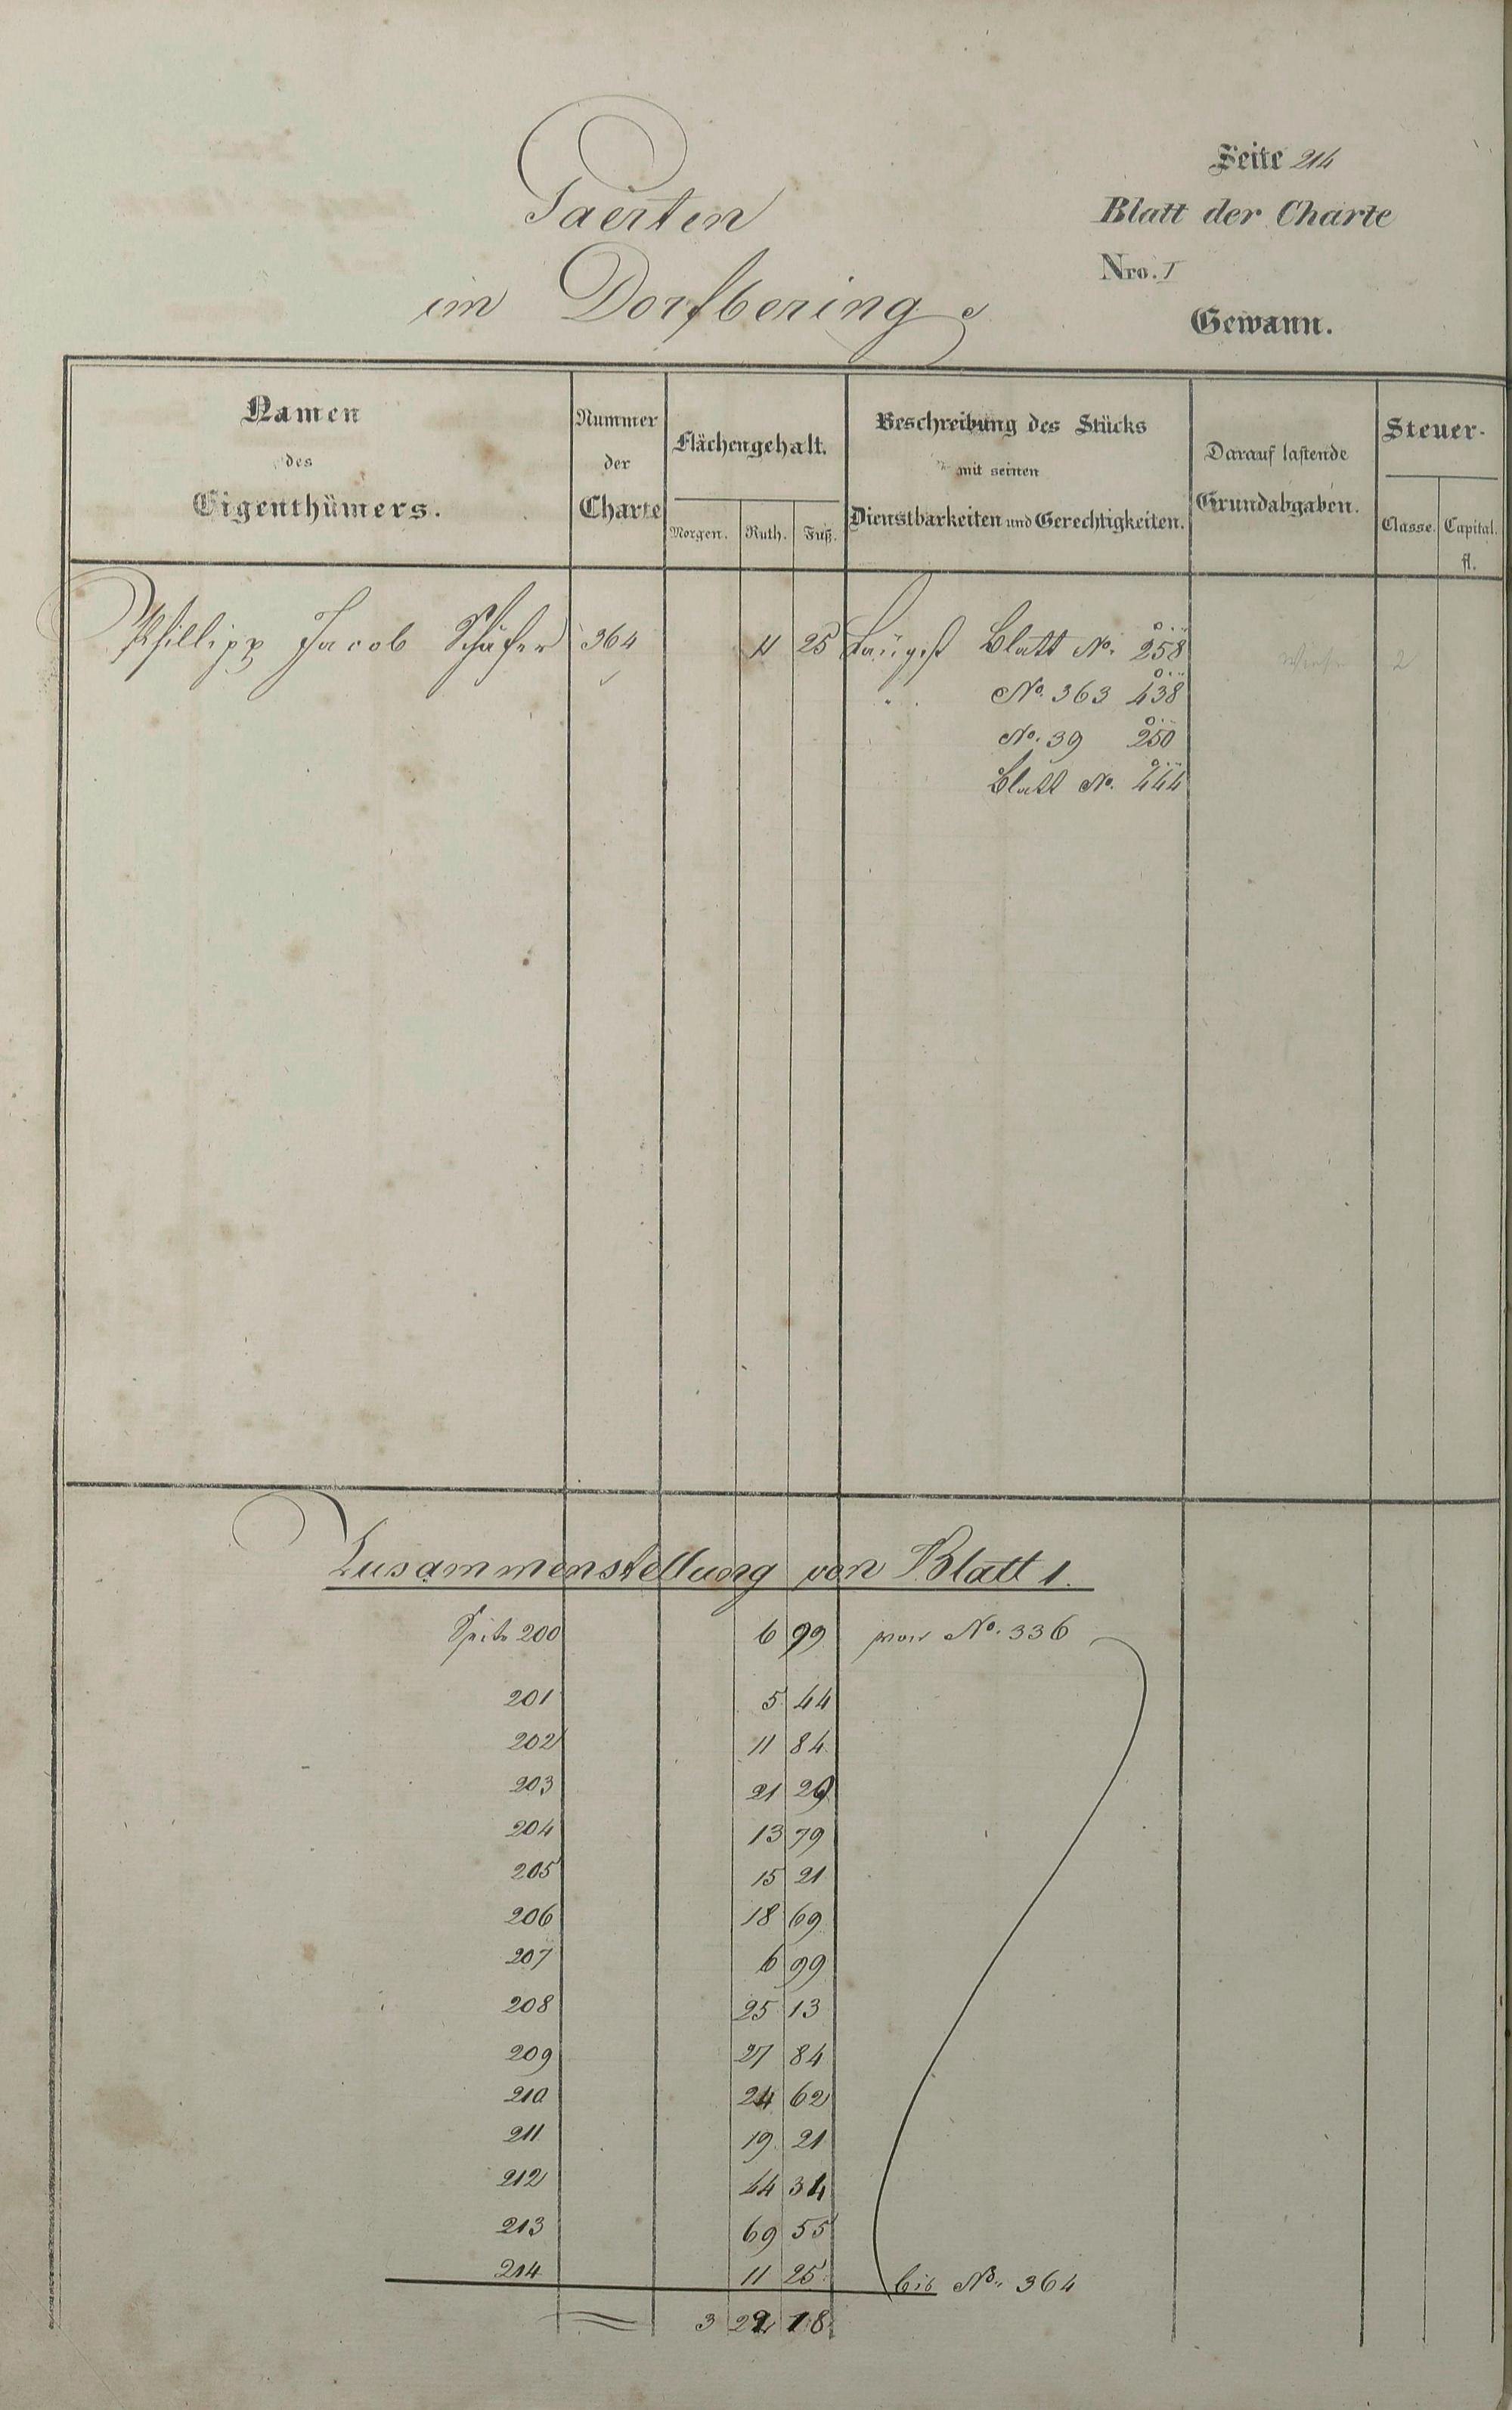 Seite 214
Gaerten
Blatt der Charte
Nro. I
im Dorfbering
Gewann.
Namen
des
Eigenthümers.
Nummer
der
Charte
Flächengehalt.
Morgen. Ruth. Fuß.
Beschreibung des Stücks
mit seinen
Dienstbarkeiten und Gerechtigkeiten.
Darauf lastende
Grundabgaben.
Steuer-
Classe. Capital.
fl.
Phillipp Jacob Schäfer 364 11 25 Blatt No. 258 2
No. 363 438
No. 39 250
Blatt No. 444
Zusammenstellung von Blatt 1.
Seite 200 6 99 von No. 336
201 5 44
202 11 84
203 21 29
204 13 79
205 15 21
206 18 69
207 6 99
208 25 13
209 27 84
210 24 62
211 19 21
212 44 34
213 69 55
214 11 25 bis No. 364
3 18